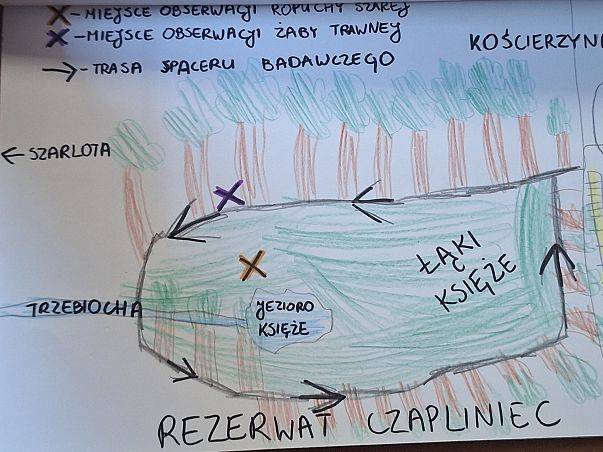 X - MIEJSCE OBSERWACJI ROPUCHY SZAREJ
X - MIEJSCE OBSERWACJI ŻABY TRAWNEJ
→ - TRASA SPACERU BADAWCZEGO
KOŚCIERZYN
← SZARLOTA
ŁĄKI
KSIĘŻE
TRZEBIOCHA
JEZIORO
KSIĘŻE
REZERWAT CZAPLINIEC